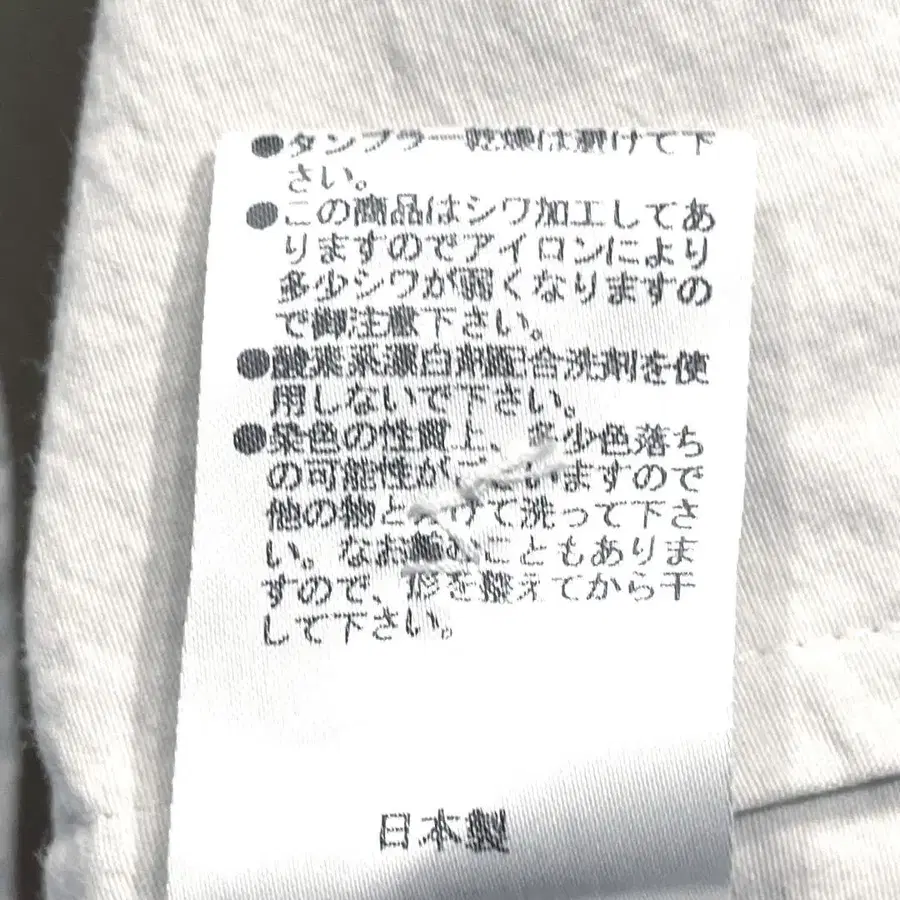 ●タンブラー乾燥は避けて下
さい。
●この商品はシワ加工してあ
りますのでアイロンにより
多少シワが弱くなりますの
で御注意下さい。
●酸素系漂白剤配合洗剤を使
用しないで下さい。
●染色の性質上、多少色落ち
の可能性がございますので
他の物とわけて洗って下さ
い。なお縮むこともありま
すので、形を整えてから干
して下さい。
日本製